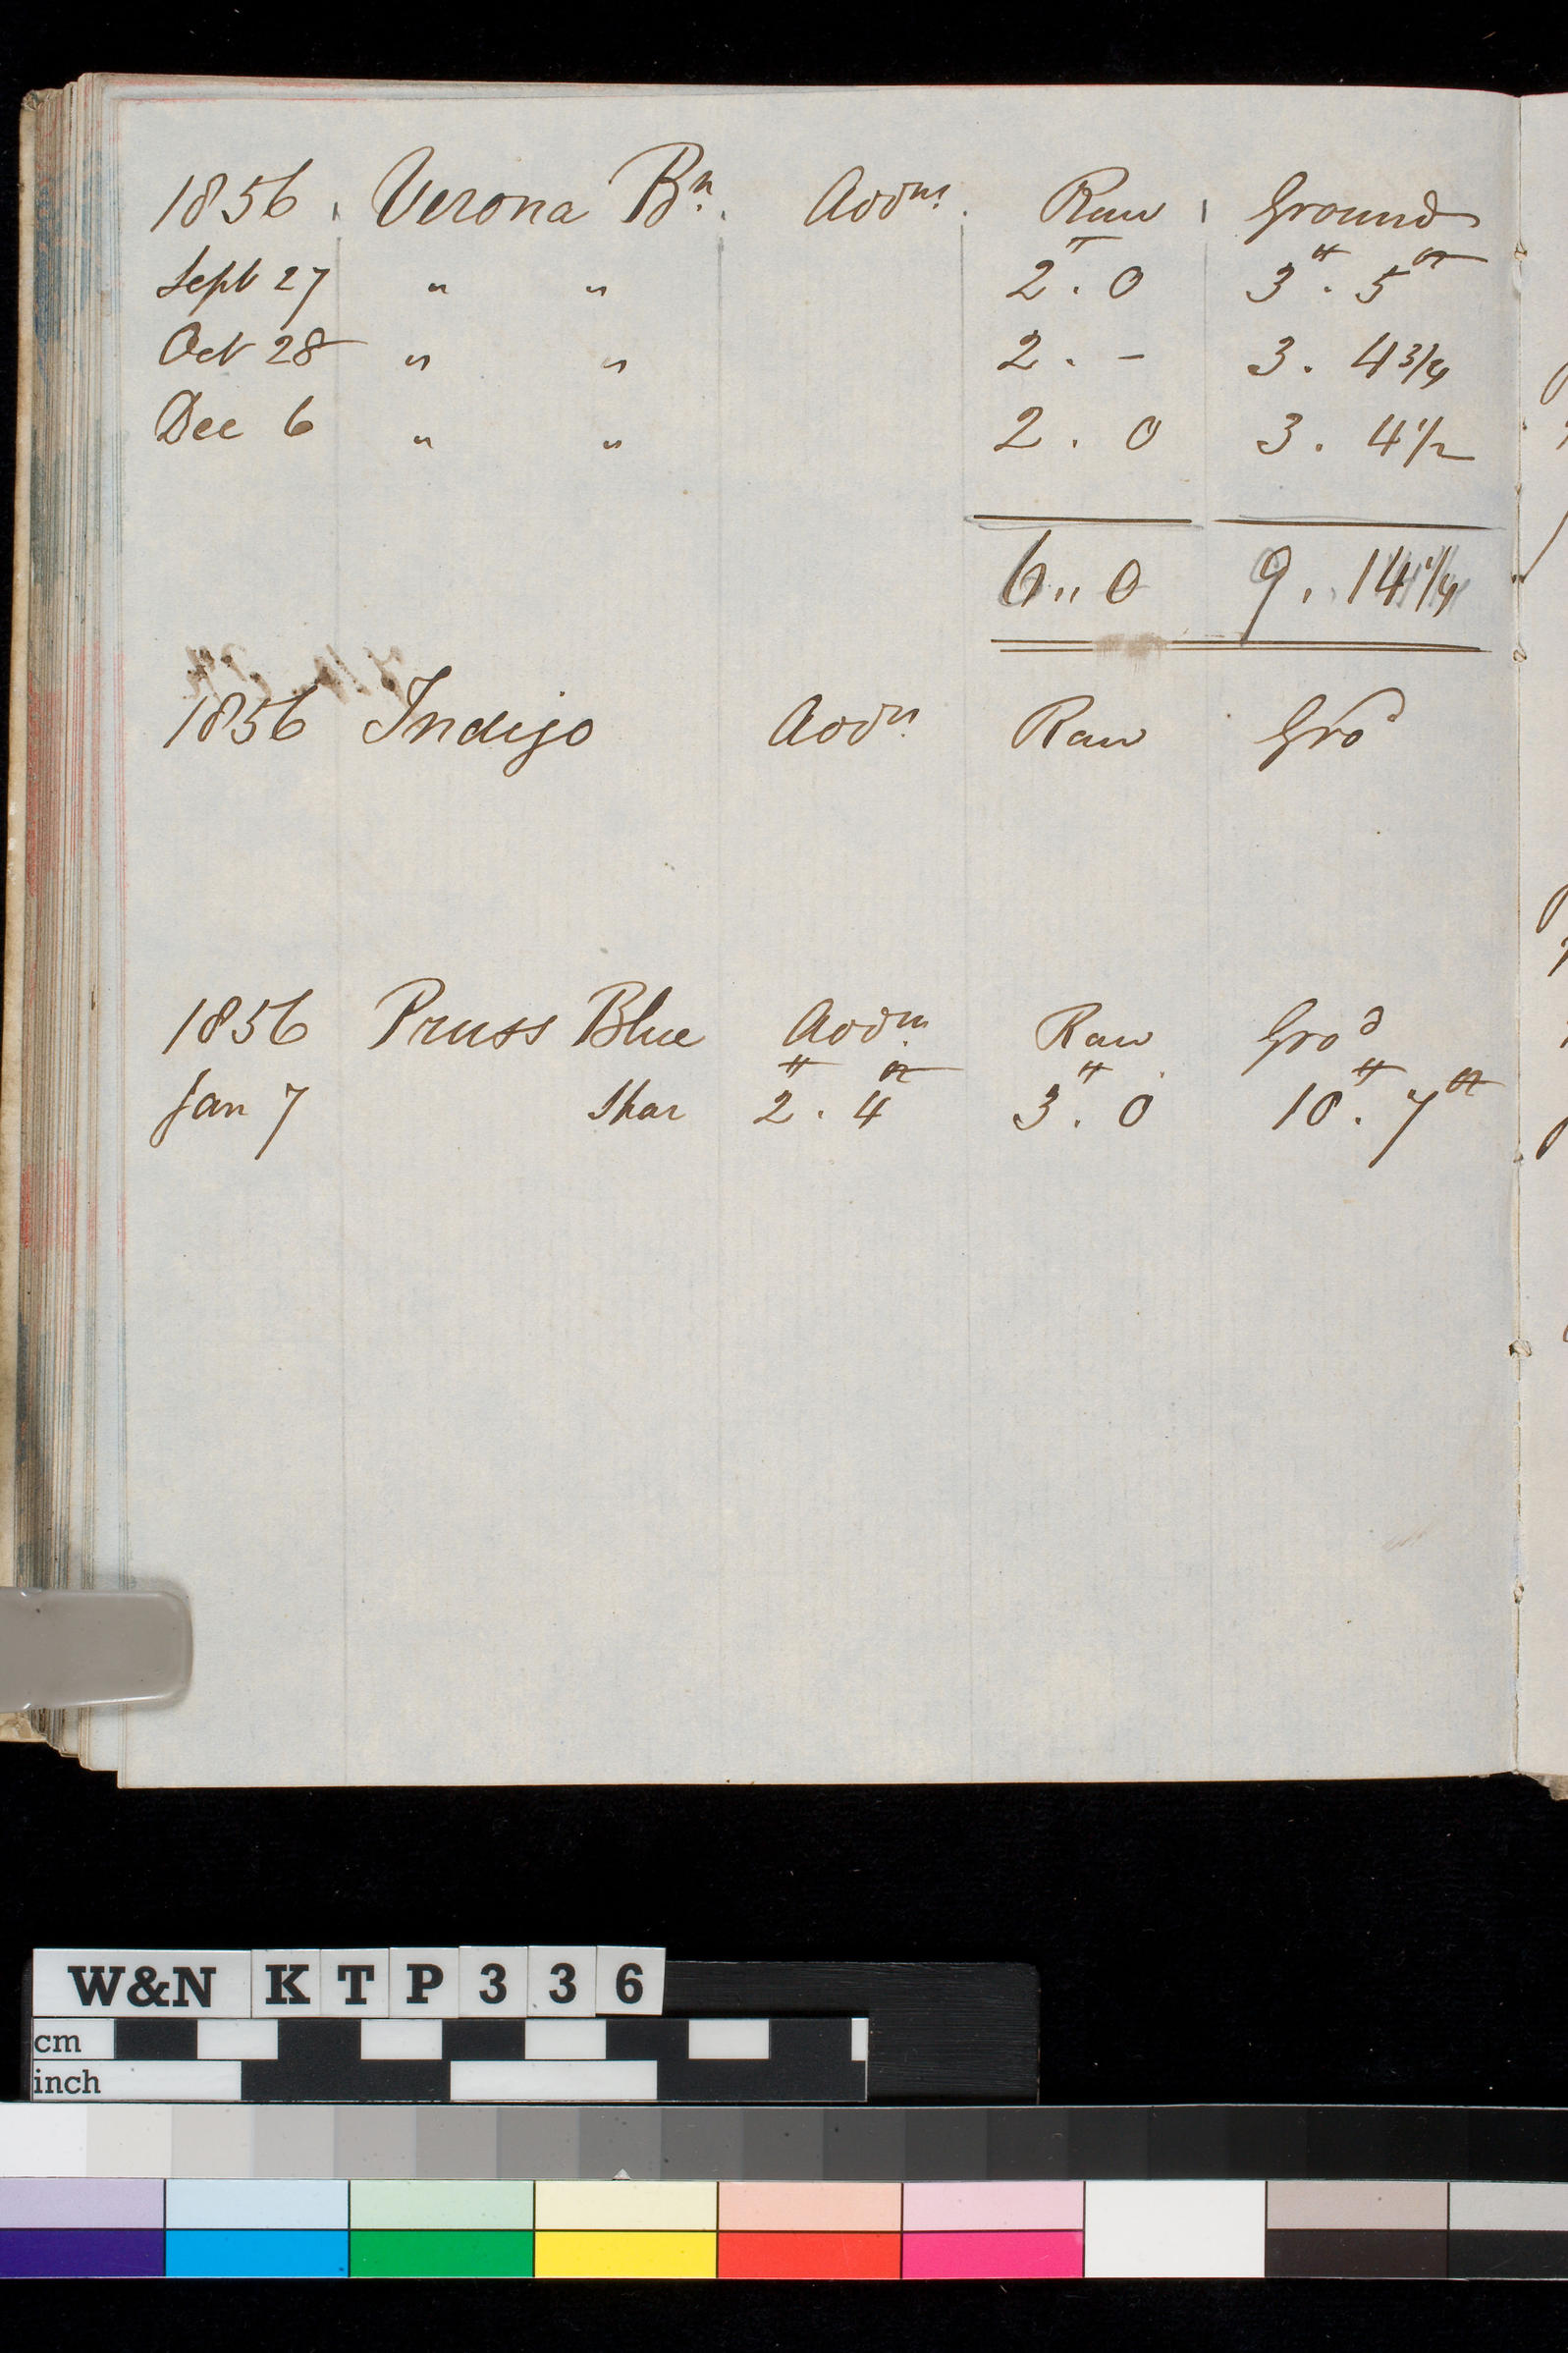 1856 Verona Bn. Addns. Raw Ground
Sept 27 " " 2 . 0 3 . 5 oz
Oct 28 " " 2 . - 3 . 4 3/4
Dec 6 " " 2 . 0 3 . 4 1/2
6 " 0 9 . 14 1/4
1856 Indigo Addn. Raw Grod
1856 Pruss Blue Addn. Raw Grod
Jan 7 2 . 4 oz 3 . 0 10 . 7 oz
W&N KTP336
cm
inch